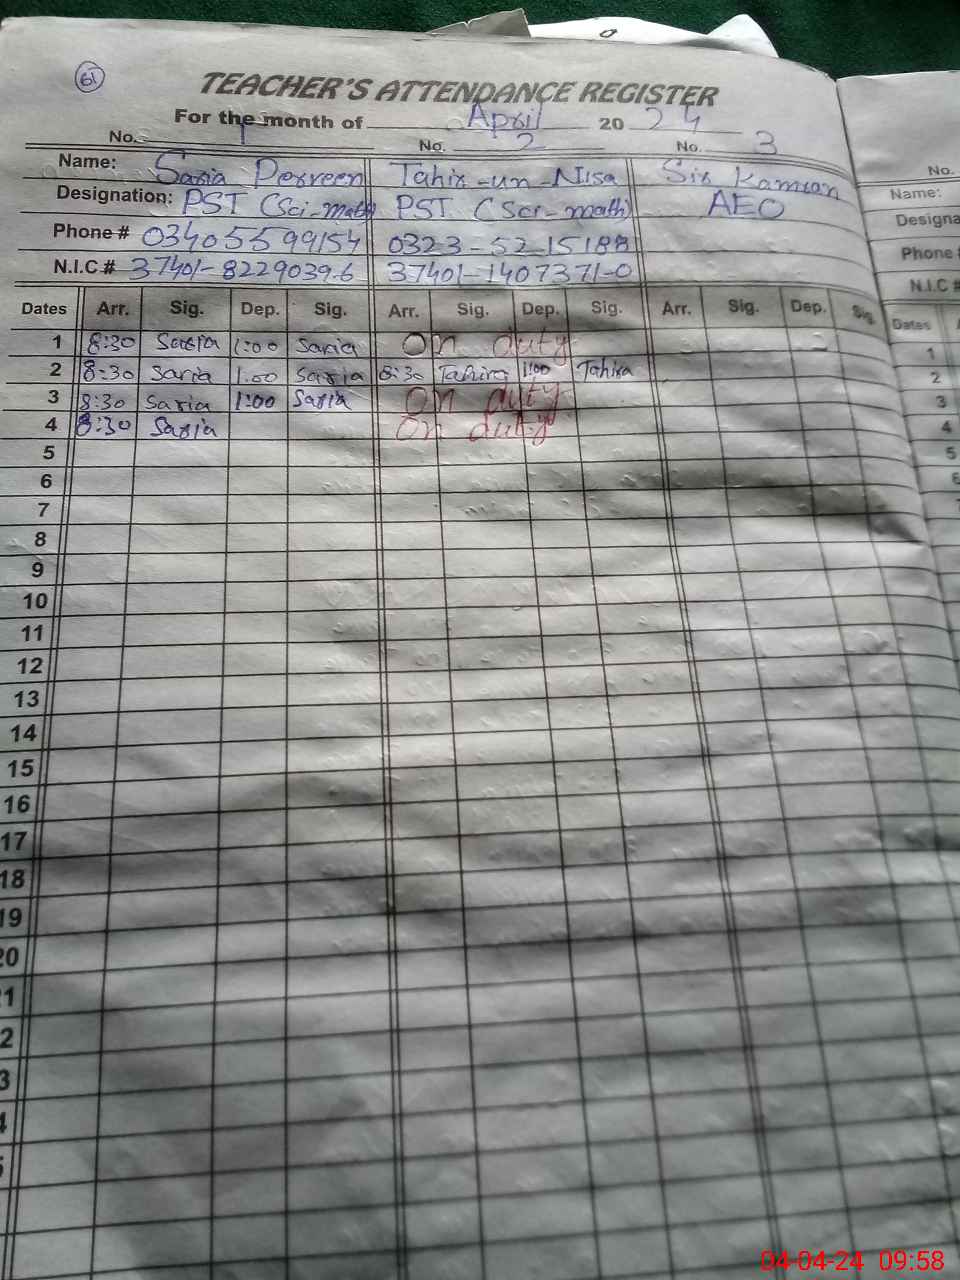 61
TEACHER'S ATTENDANCE REGISTER
For the month of April 2024
No. 1 No. 2 No. 3
Name: Saria Perveen Tahir-un-Nisa Sir Kamran
Designation: PST (Sci-math) PST (Sci-math) AEO
Phone # 03405599154 0323-5215188
N.I.C.# 37401-8229039.6 37401-1407371-0
Dates Arr. Sig. Dep. Sig. Arr. Sig. Dep. Sig. Arr. Sig. Dep. Sig.
1 8:30 Saria 1:00 Saria On duty
2 8:30 Saria 1.00 Saria 8:30 Tahira 1:00 Tahira
3 8:30 Saria 1:00 Saria On duty
4 8:30 Saria On duty
5
6
7
8
9
10
11
12
13
14
15
16
17
18
19
20
No.
Name:
Designa
Phone
N.I.C #
Dates
1
2
3
4
5
6
04-04-24 09:58